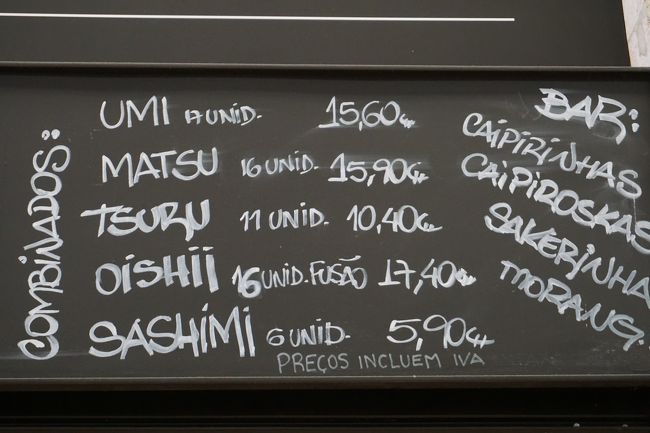 COMBINADOS:
UMI 17 UNID. 15,60€
MATSU 16 UNID. 15,90€
TSURU 11 UNID. 10,40€
OISHII 16 UNID. FUSÃO 17,40€
SASHIMI 6 UNID. 5,90€
PREÇOS INCLUEM IVA
BAR:
CAIPIRINHAS
CAIPIROSKAS
SAKERINHA
MORANG.